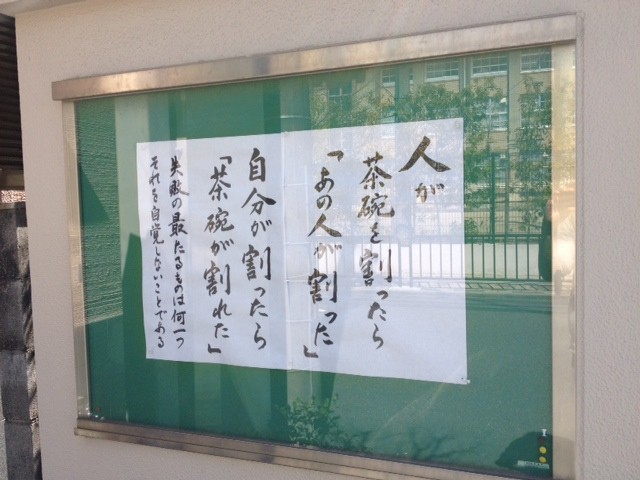 人が
茶碗を割ったら
「あの人が割った」
自分が割ったら
「茶碗が割れた」
失敗の最たるものは何一つ
それを自覚しないことである